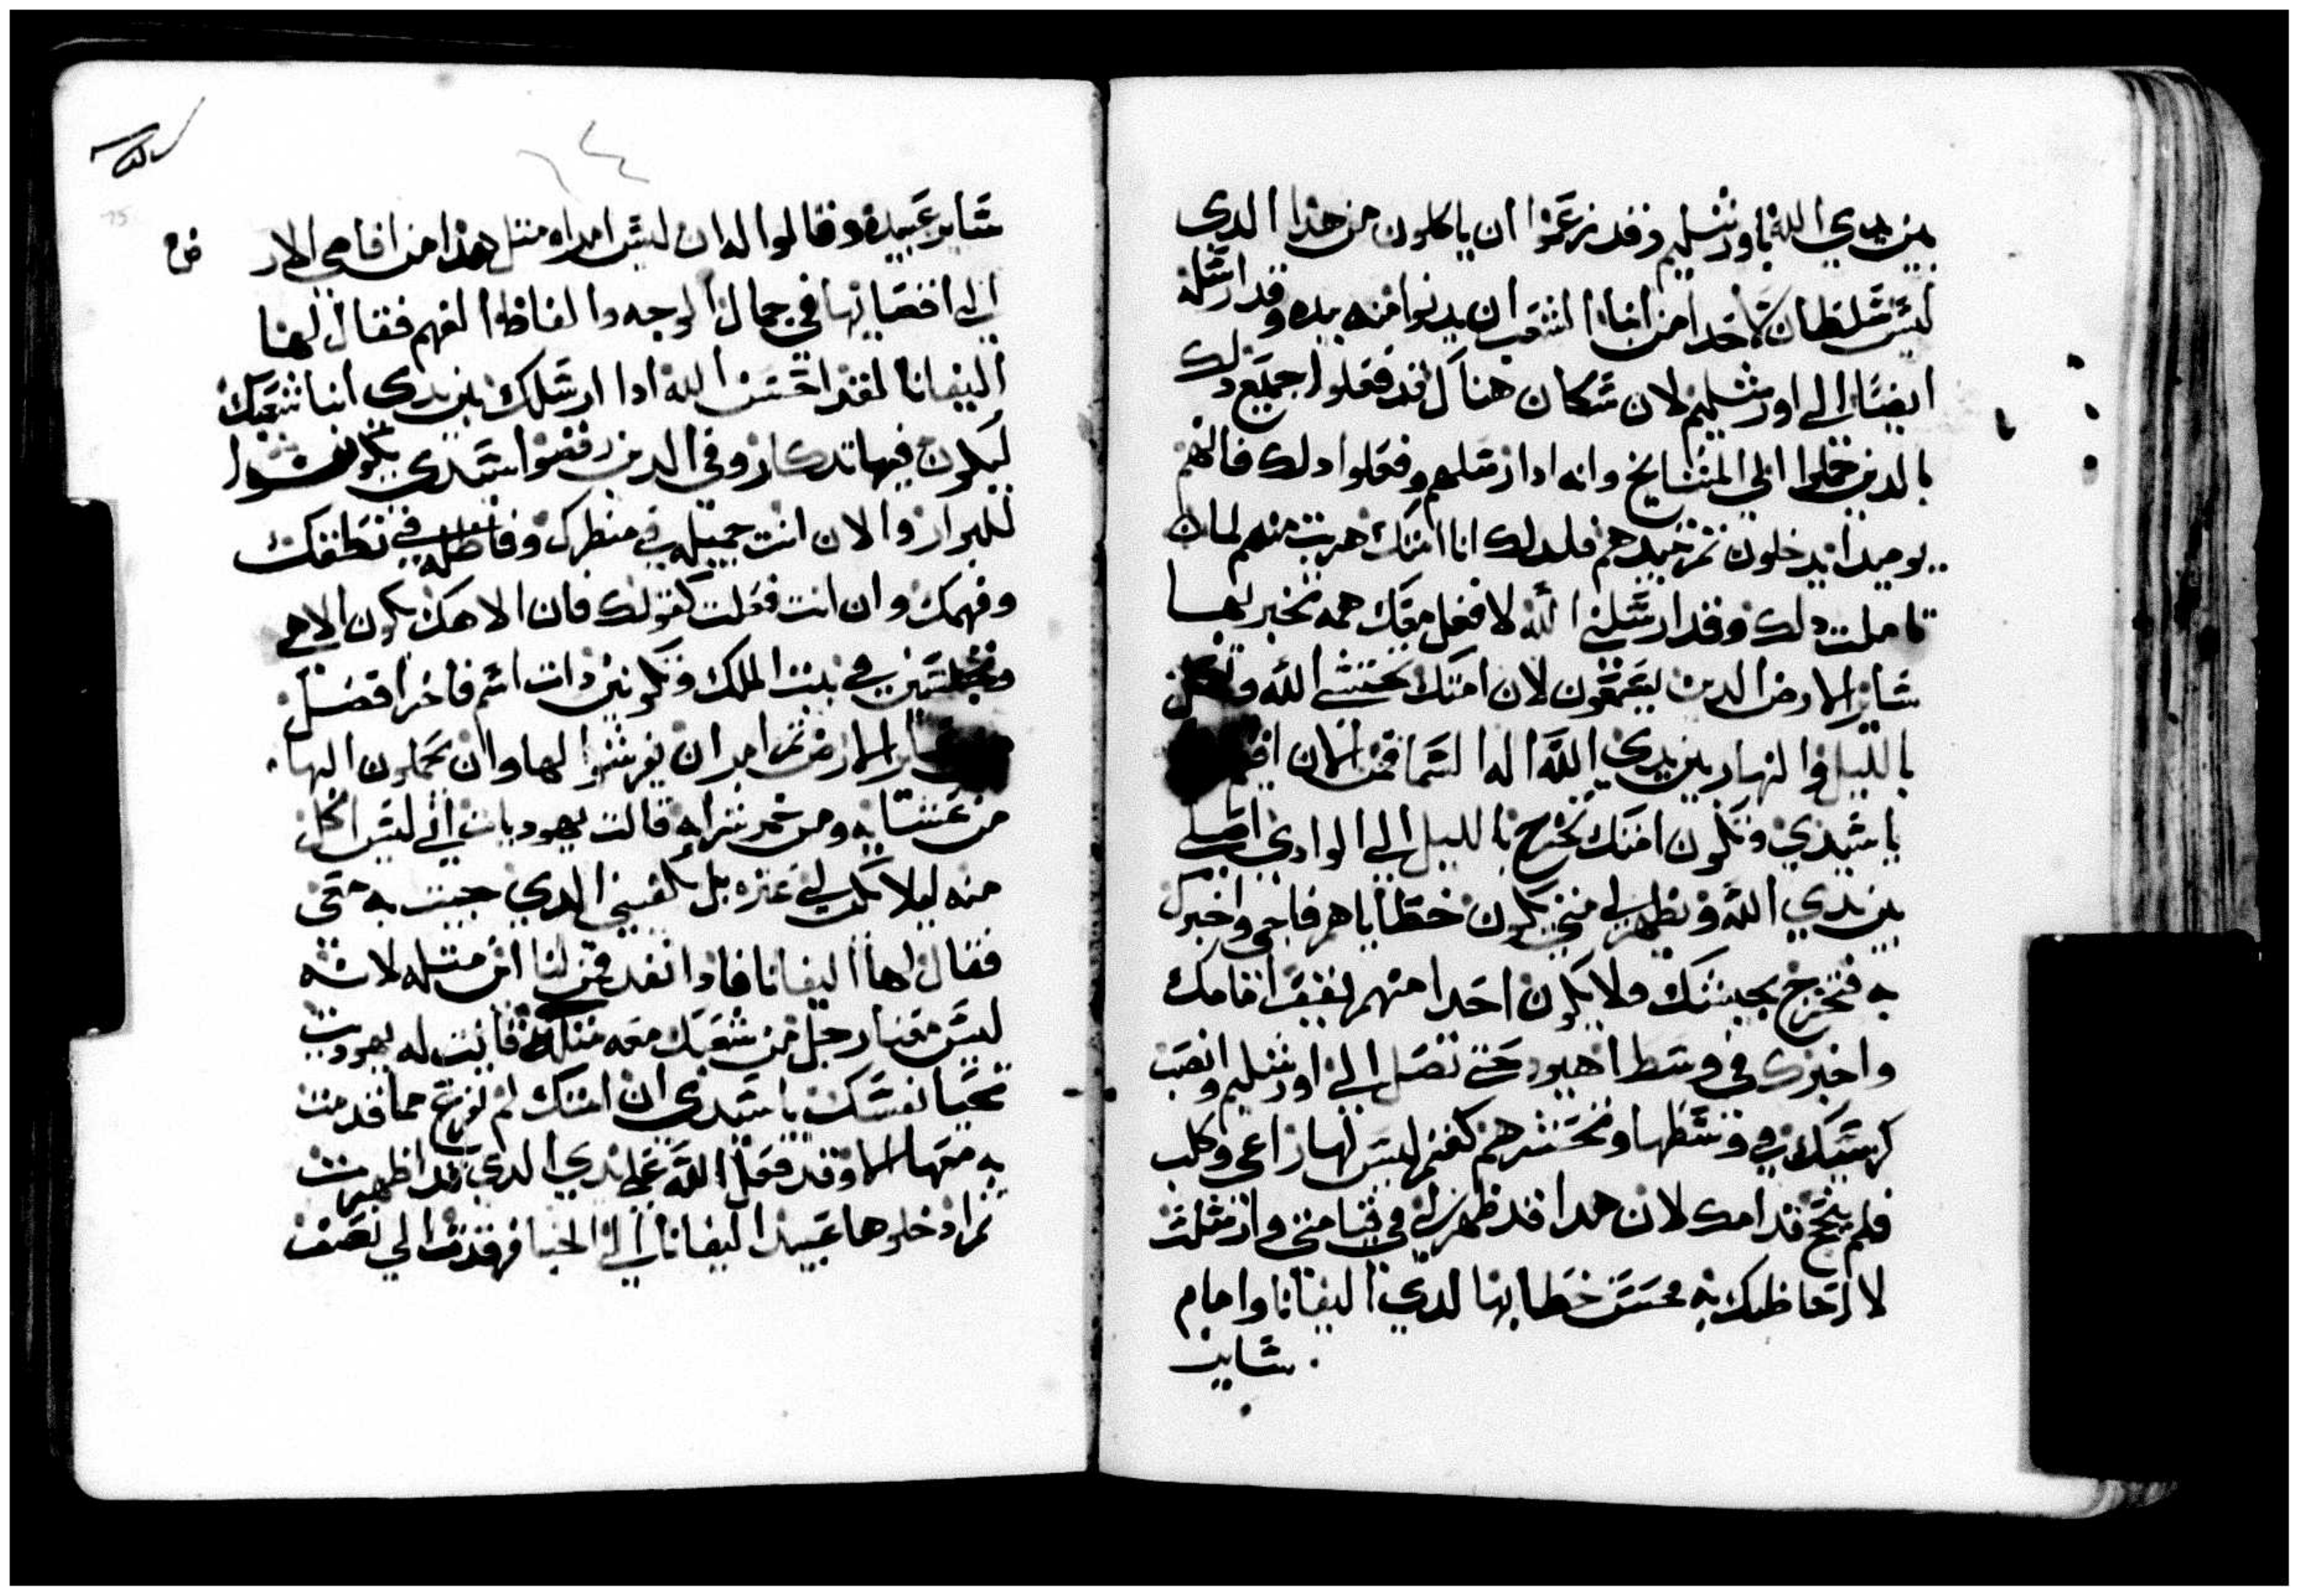 بين يدي الله باورشليم وقد زعموا ان ياكلون من هذا الدي
ليس سلطان لاحدا من ابنا الشعب ان يدنوا منه بيده وقد ارسله
ايضا الى اورشليم لان سكان هناك قد فعلوا جميع دلك
بالدين حملوا الي المشايخ وانه ادا ارسلهم وفعلوا دلك فانهم
يوميدا يدخلون تمر تبيدهم فلدلك انا امتك هربت منهم لما ان
تاملت دلك وقد ارسلني الله لافعل معك همه تخبر بها
ساير الارض الدين يسمعون لان امتك تختشي الله
بالليل والنهار بين يدي الله اله السما فمن الان
يا سيدي وتكون امتك تخرج بالليل الى الوادي اصلي
بين يدي الله ويظهر لي متى تكون خطاياهم فاجي واخبرك
به فتخرج بجيشك ولا يكون احدا منهم يقف اقامك
واخبرك في وسط اهيود حتى تصل الى اورشليم وانصب
كرسيك في وسطها وتحشرهم كغنم ليس لها راعي وكلب
فلم ينبح قدامك لان هدا قد ظهر لي في منامي وارسلت
لالاحاظك به فحسن خطابها لدي اليفانا وامام
ساير
٦٤
ساير عبيده وقالوا له ان ليس امراه مثل هدا من اقاصي الار
ض
الى اقصايها في جمال الوجه والفاظ الفهم فقال لها
اليفانا لقد احسن الله ادا ارسلك بين يدي ابنا شعبك
ليكون فيها تدكار وفي الدين رفضوا سيدي
للبرار والان انت جميله في منظرك وفاضله في نطقك
وفهمك وان انت فعلت كقولك فان الاهك يكون الاهي
وتجلسين في بيت الملك وتكونين دات اسم فاخرا افضل
الارض تم امر ان يفرشوا لها وان يحملون اليها
من عشايه ومن خمر شرابه قالت يهوديات اني ليس اكل
منه ليلا يكون لي عتره بل يكفيني الدي جيت به معي
فقال لها اليفانا فادا نفد فمن لنا اين مثله لانه
ليس معنا رجل من شعبك معه مثله فاتت له يهوديت
تحيا نفسك يا سيدي ان امتك لم تفرغ مما قدمت
به معها الا وقد فعل الله على يدي الدي قد اظهرت
تم ادخلوها عبيد اليفانا الى الخبا فرقدت الى نصف